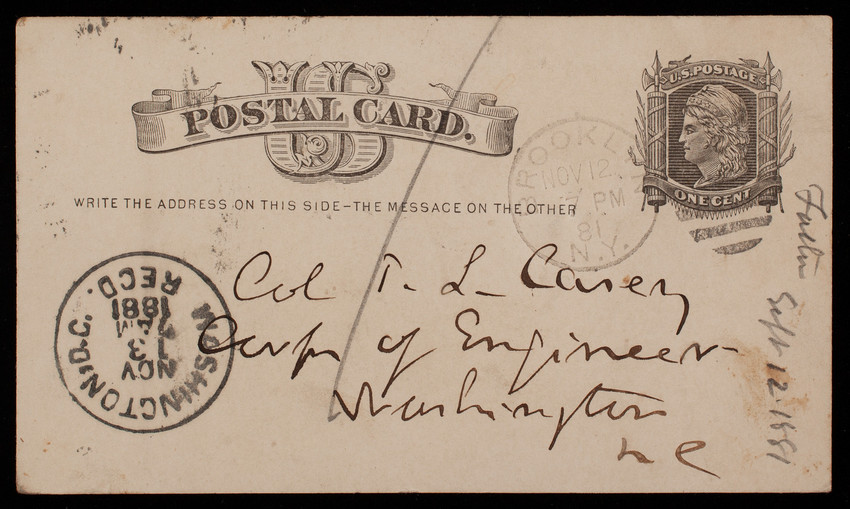 U.S. POSTAGE
US
POSTAL CARD.
ONE CENT
WRITE THE ADDRESS ON THIS SIDE-THE MESSAGE ON THE OTHER
BROOKLYN
NOV 12
7 PM
81
N.Y.
Col T. L. Casey
Corps of Engineer
Washington
D C
WASHINGTON, D.C.
NOV
13
AM
1881
RECD.
Sept 12 1881